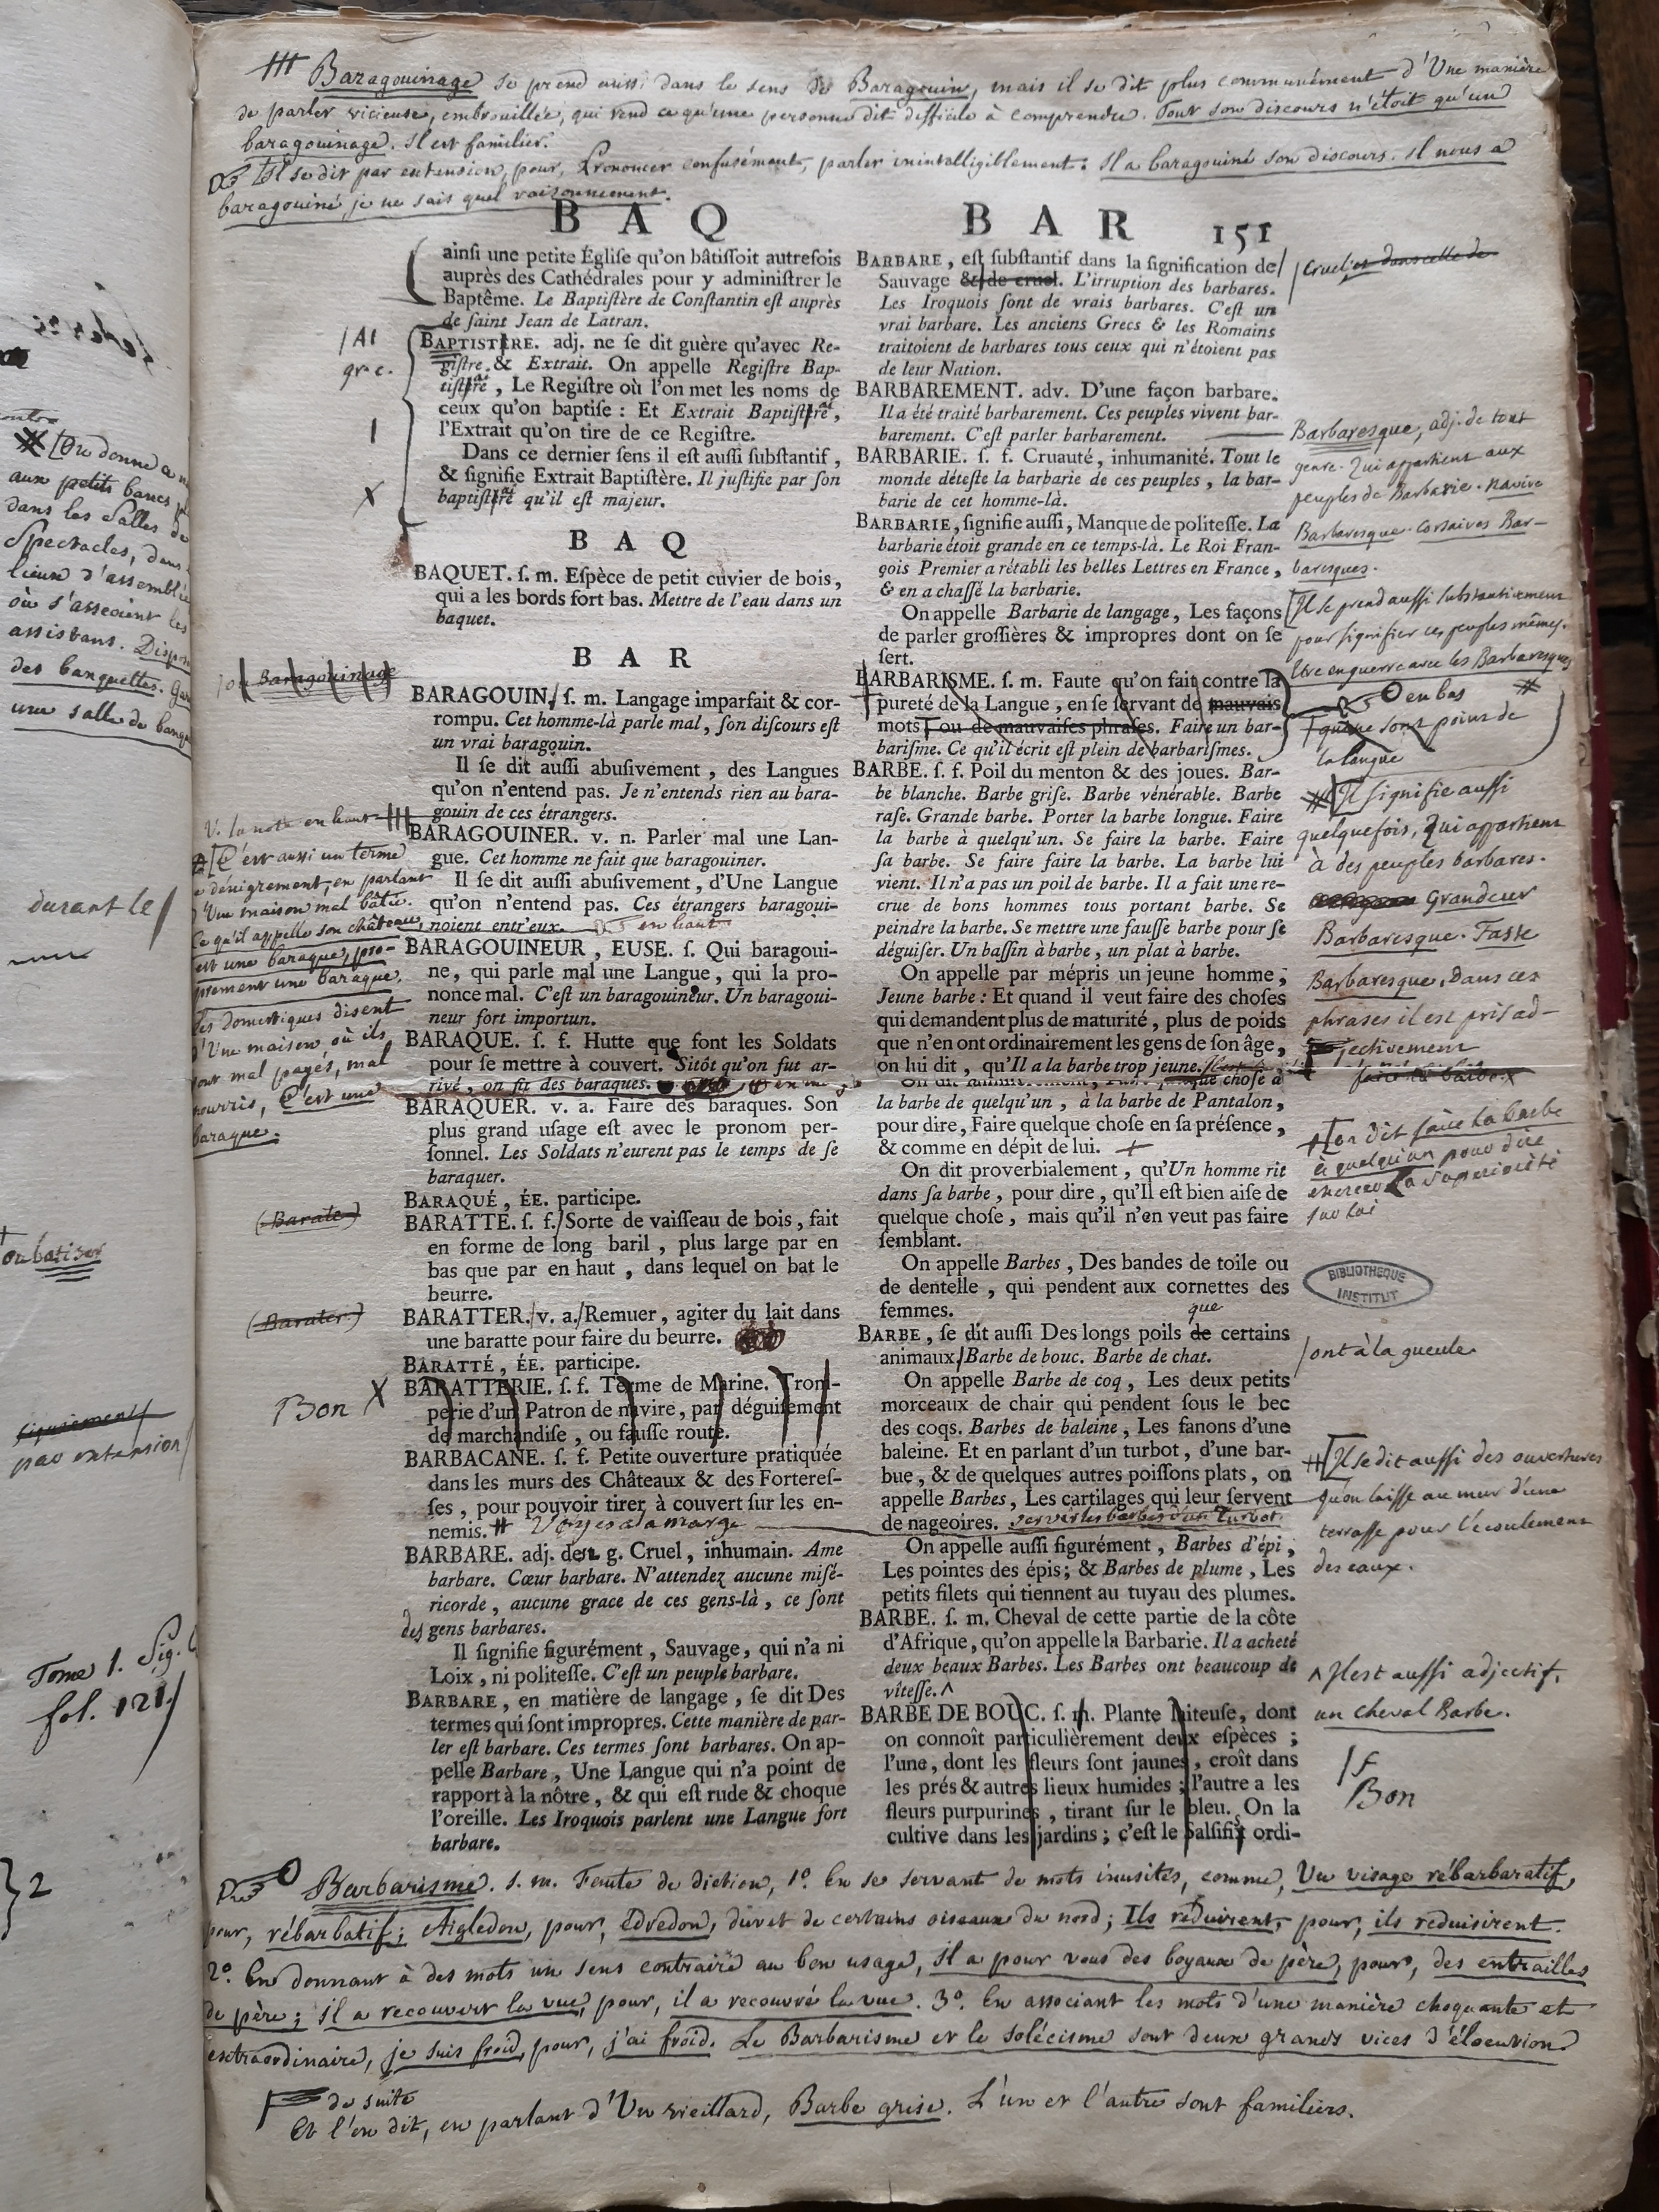 Baragouinage se prend aussi dans le sens de Baragouin, mais il se dit plus communément d'Une manière
de parler vicieuse, embrouillée, qui rend ce qu'une personne dit difficile à comprendre. Tout son discours n'étoit qu'un
baragouinage. Il est familier.
Il se dit par extension, pour, Prononcer confusément, parler inintelligiblement. Il a baragouiné son discours. Il nous a
baragouiné je ne sais quel raisonnement.
BAQ
BAR 151
ainſi une petite Égliſe qu'on bâtiſſoit autrefois
auprès des Cathédrales pour y adminiſtrer le
Baptême. Le Baptiſtère de Conſtantin eſt auprès
de ſaint Jean de Latran.
BAPTISTÈRE. adj. ne ſe dit guère qu'avec Re-
giſtre & Extrait. On appelle Regiſtre Bap-
tiſtère, Le Regiſtre où l'on met les noms de
ceux qu'on baptiſe : Et Extrait Baptiſtère,
l'Extrait qu'on tire de ce Regiſtre.
Dans ce dernier ſens il eſt auſſi ſubſtantif,
& ſignifie Extrait Baptiſtère. Il juſtifie par ſon
baptiſtère qu'il eſt majeur.
BAQ
BAQUET. ſ. m. Eſpèce de petit cuvier de bois,
qui a les bords fort bas. Mettre de l'eau dans un
baquet.
BAR
ou Baragouinage
BARAGOUIN, ſ. m. Langage imparfait & cor-
rompu. Cet homme-là parle mal, ſon diſcours eſt
un vrai baragouin.
Il ſe dit auſſi abuſivement, des Langues
qu'on n'entend pas. Je n'entends rien au bara-
gouin de ces étrangers.
V. la note en haut
BARAGOUINER. v. n. Parler mal une Lan-
gue. Cet homme ne fait que baragouiner.
Il ſe dit auſſi abuſivement, d'Une Langue
qu'on n'entend pas. Ces étrangers baragoui-
noient entr'eux. en haut
BARAGOUINEUR, EUSE. ſ. Qui baragoui-
ne, qui parle mal une Langue, qui la pro-
nonce mal. C'eſt un baragouineur. Un baragoui-
neur fort importun.
BARAQUE. ſ. f. Hutte que font les Soldats
pour ſe mettre à couvert. Sitôt qu'on fut ar-
rivé, on fit des baraques.
C'est aussi un terme
de dénigrement, en parlant
d'Une maison mal bâtie.
Ce qu'il appelle son château,
est une baraque, pro-
prement une baraque.
Les domestiques disent
d'Une maison où ils
sont mal payés, mal
nourris, C'est une
baraque.
BARAQUER. v. a. Faire des baraques. Son
plus grand uſage eſt avec le pronom per-
ſonnel. Les Soldats n'eurent pas le temps de ſe
baraquer.
BARAQUÉ, ÉE. participe.
(Barate)
BARATTE. ſ. f. Sorte de vaiſſeau de bois, fait
en forme de long baril, plus large par en
bas que par en haut, dans lequel on bat le
beurre.
(Barater)
BARATTER. v. a. Remuer, agiter du lait dans
une baratte pour faire du beurre.
BARATTÉ, ÉE. participe.
Bon X
BARATTERIE. ſ. f. Terme de Marine. Trom-
perie d'un Patron de navire, par déguiſement
de marchandiſe, ou fauſſe route.
BARBACANE. ſ. f. Petite ouverture pratiquée
dans les murs des Châteaux & des Fortereſ-
ſes, pour pouvoir tirer à couvert ſur les en-
nemis. # Voyez à la marge
BARBARE. adj. de t. g. Cruel, inhumain. Ame
barbare. Cœur barbare. N'attendez aucune miſé-
ricorde, aucune grace de ces gens-là, ce ſont
des gens barbares.
Il ſignifie figurément, Sauvage, qui n'a ni
Loix, ni politeſſe. C'eſt un peuple barbare.
BARBARE, en matière de langage, ſe dit Des
termes qui ſont impropres. Cette manière de par-
ler eſt barbare. Ces termes ſont barbares. On ap-
pelle Barbare, Une Langue qui n'a point de
rapport à la nôtre, & qui eſt rude & choque
l'oreille. Les Iroquois parlent une Langue fort
barbare.
BARBARE, eſt ſubſtantif dans la ſignification de
Sauvage & de cruel. L'irruption des barbares.
Les Iroquois ſont de vrais barbares. C'eſt un
vrai barbare. Les anciens Grecs & les Romains
traitoient de barbares tous ceux qui n'étoient pas
de leur Nation.
Cruel et dans celle de
BARBAREMENT. adv. D'une façon barbare.
Il a été traité barbarement. Ces peuples vivent bar-
barement. C'eſt parler barbarement.
Barbaresque, adj. de tout
genre. Qui appartient aux
peuples de Barbarie. Navire
Barbaresque. Corsaires Bar-
baresques.
Il se prend aussi substantivement
pour signifier ces peuples mêmes.
Etre en guerre avec les Barbaresques
BARBARIE. ſ. f. Cruauté, inhumanité. Tout le
monde déteſte la barbarie de ces peuples, la bar-
barie de cet homme-là.
BARBARIE, ſignifie auſſi, Manque de politeſſe. La
barbarie étoit grande en ce temps-là. Le Roi Fran-
çois Premier a rétabli les belles Lettres en France,
& en a chaſſé la barbarie.
On appelle Barbarie de langage, Les façons
de parler groſſières & impropres dont on ſe
ſert.
BARBARISME. ſ. m. Faute qu'on fait contre la
pureté de la Langue, en ſe ſervant de mauvais
mots, ou de mauvaiſes phraſes. Faire un bar-
bariſme. Ce qu'il écrit eſt plein de barbariſmes.
en bas
qui ne sont point de
la langue
Il signifie aussi
quelquefois, Qui appartient
à des peuples barbares.
Grandeur
Barbaresque. Faste
Barbaresque. Dans ces
phrases il est pris ad-
jectivement
BARBE. ſ. f. Poil du menton & des joues. Bar-
be blanche. Barbe griſe. Barbe vénérable. Barbe
raſe. Grande barbe. Porter la barbe longue. Faire
la barbe à quelqu'un. Se faire la barbe. Faire
ſa barbe. Se faire faire la barbe. La barbe lui
vient. Il n'a pas un poil de barbe. Il a fait une re-
crue de bons hommes tous portant barbe. Se
peindre la barbe. Se mettre une fauſſe barbe pour ſe
déguiſer. Un baſſin à barbe, un plat à barbe.
On appelle par mépris un jeune homme,
Jeune barbe : Et quand il veut faire des choſes
qui demandent plus de maturité, plus de poids
que n'en ont ordinairement les gens de ſon âge,
on lui dit, qu'Il a la barbe trop jeune.
que choſe à
la barbe de quelqu'un, à la barbe de Pantalon,
pour dire, Faire quelque choſe en ſa préſence,
& comme en dépit de lui. +
faire la barbe
On dit faire la barbe
à quelqu'un pour dire
exercer sa supériorité
sur lui
On dit proverbialement, qu'Un homme rit
dans ſa barbe, pour dire, qu'Il eſt bien aiſe de
quelque choſe, mais qu'il n'en veut pas faire
ſemblant.
On appelle Barbes, Des bandes de toile ou
de dentelle, qui pendent aux cornettes des
femmes.
BIBLIOTHEQUE
INSTITUT
que
BARBE, ſe dit auſſi Des longs poils de certains
animaux. Barbe de bouc. Barbe de chat.
ont à la gueule
On appelle Barbe de coq, Les deux petits
morceaux de chair qui pendent ſous le bec
des coqs. Barbes de baleine, Les fanons d'une
baleine. Et en parlant d'un turbot, d'une bar-
bue, & de quelques autres poiſſons plats, on
appelle Barbes, Les cartilages qui leur ſervent
de nageoires. Servir les barbes d'un Turbot.
Il se dit aussi des ouvertures
qu'on laisse au mur d'une
terrasse pour l'écoulement
des eaux.
On appelle auſſi figurément, Barbes d'épi,
Les pointes des épis; & Barbes de plume, Les
petits filets qui tiennent au tuyau des plumes.
BARBE. ſ. m. Cheval de cette partie de la côte
d'Afrique, qu'on appelle la Barbarie. Il a acheté
deux beaux Barbes. Les Barbes ont beaucoup de
vîteſſe.
Il est aussi adjectif,
un cheval Barbe.
BARBE DE BOUC. ſ. m. Plante laiteuſe, dont
on connoît particulièrement deux eſpèces ;
l'une, dont les fleurs ſont jaunes, croît dans
les prés & autres lieux humides ; l'autre a les
fleurs purpurines, tirant ſur le bleu. On la
cultive dans les jardins ; c'eſt le Salſifix ordi-
f
Bon
Barbarisme. s. m. Faute de diction, 1º. En se servant de mots inusités, comme, Un visage rébarbaratif,
pour, rébarbatif; Aigledon, pour, édredon, duvet de certains oiseaux du nord; Ils réduirent, pour, ils réduisirent.
2º. En donnant à des mots un sens contraire au bon usage, il a pour vous des boyaux de père, pour, des entrailles
de père; il a recouvert la vue, pour, il a recouvré la vue. 3º. En associant les mots d'une manière choquante et
extraordinaire, je suis froid, pour, j'ai froid. Le Barbarisme et le solécisme sont deux grands vices d'élocution.
de suite
Et l'on dit, en parlant d'Un vieillard, Barbe grise. L'un et l'autre sont familiers.
On donne ce
aux petits bancs
dans les Salles de
Spectacles, dans
lieux d'assemblée
où s'asseoient les
assistans.
des banquettes.
une salle de
durant le
ou batiser
figurément
par extension
Tome 1. Sig.
fol. 121
2